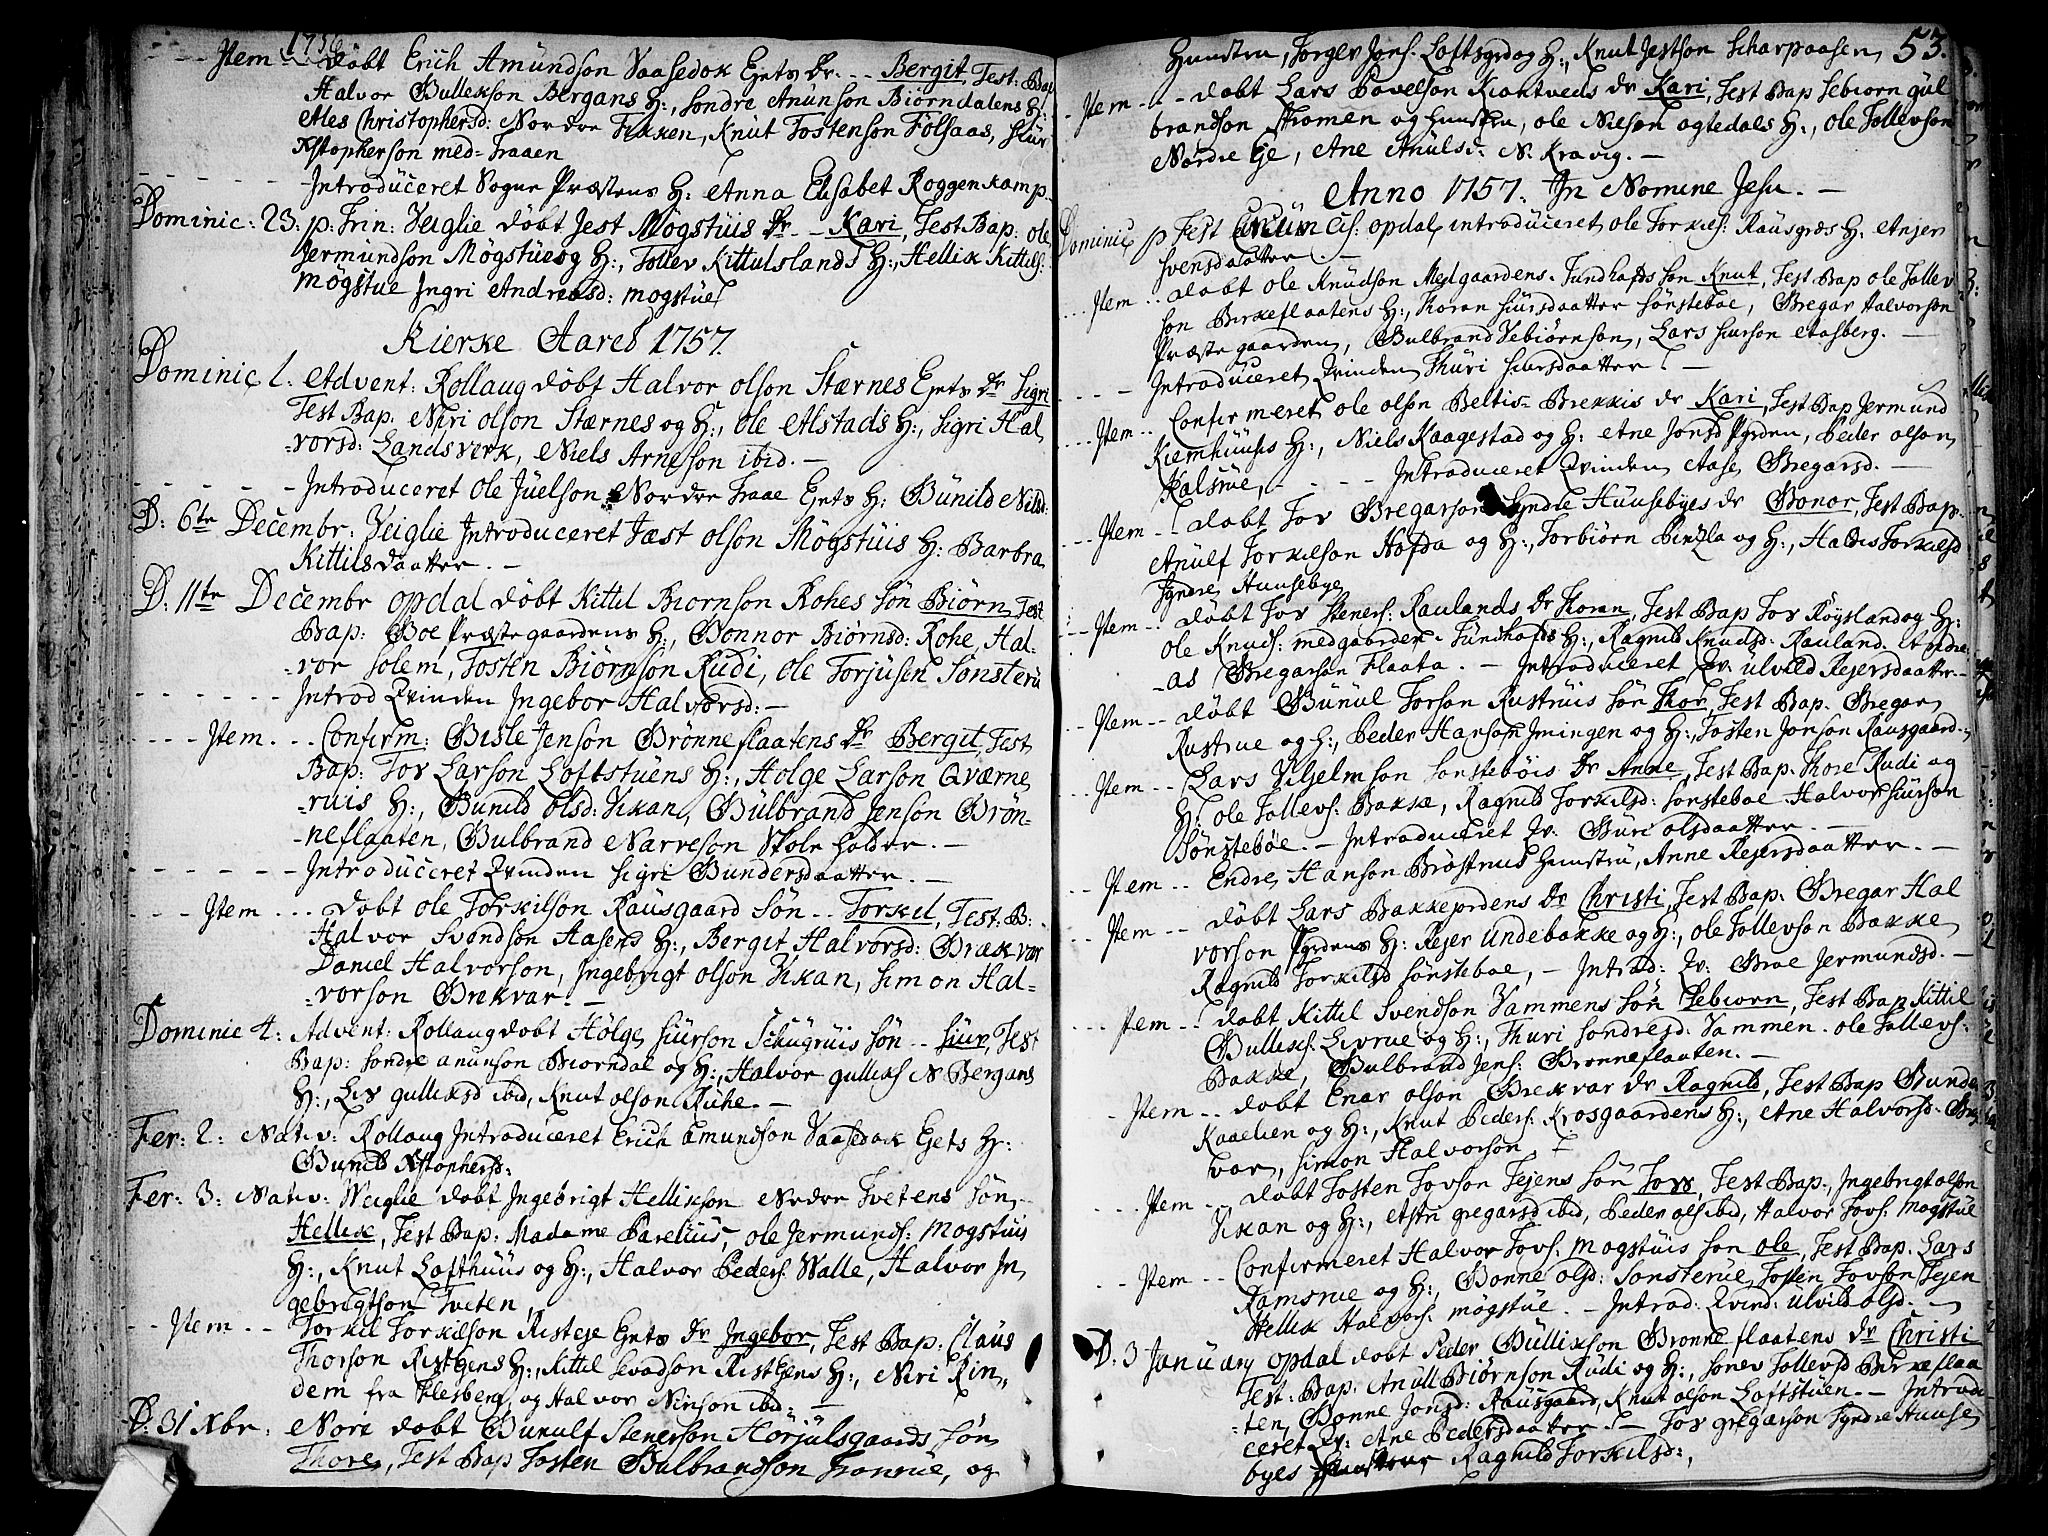 1756
Item - - døbt Erich Amundson Vaasedok Ejets Dr. - - Bergit, Test: Bap
Halvor Gulleksøn Bergans H:, Søndre Anunsøn Biørndalens H:
Ales Christophersd: Nordre Fekken, Knut Tostensøn Følsaas, Siur
Xstophersøn med-Traaen
Introduceret Sogne Præstens H: Anna Elisabet Roggenkamp.
Dominic: 23. p: Trin: Veiglie døbt Jest Mögstuis Dr - - Kari, Test Bap: ole
Jermundson Mögstue og H:, Tollev Kittulslands H:, Hellik Kittils:
Mögstue Ingri Andreasd: mogstue
Kierke Aaret 1757.
Dominic 1. Advent: Rollaug døbt Halvor olson Stærnes Ejets Dr Sigri
Test Bap: Niri olson Stærnes og H:, ole Alstads H:, Sigri Hal,
-vorsd: Landsverk, Niels Arneson ibid. -
- - - - - Introduceret Ole Juelson Nordre Traae Ejets H: Gunild Nilsd:
D: 6te Decembr: Veiglie Introduceret Jæst olson Mögstuis H: Barbra
Kittilsdaatter. -
D: 11te Decembr opdal døbt Kittil Biørnson Rohes Søn Biørn, Test
Bap: Goe Præstegaardens H:, Gonnor Biørnsd: Rohe, Hal-
-vor Solem, Tosten Biørnson Rudi, ole Torjusen Sønsteru
- - - - - Introd Qvinden Ingebor Halvorsd: -
- - - - Item. - - Confirm: Gisle Jenson Grønneflaatens Dr Bergit, Test
Bap: Tor Larson Loftstuens H:, Holge Larson Qværne
-ruis H:, Gunild olsd: Vikan, Gulbrand Jenson Grøn-
-neflaaten, Gulbrand Narveson Skoleholder. -
- - - - - Introduceret Qvinden Sigri Gundersdaatter. -
- - - Item - - - døbt ole Torkilson Rausgaard Søn - - Torkil, Test: B:
Halvor Svendson Aasens H:, Bergit Halvorsd: Brækvar
Daniel Halvorson, Ingebrigt olson Vikan, Simon Hal-
-vorson Brekvar. -
Dominic 4: Advent: Rollaug døbt Holge Siurson Schugruis søn - - Siur, Test
Bap: Søndre anunson Biørndal og H:, Halvor gulliks N Bergans
H:, Liv gulliksd ibid, Knut olson Ruhe. -
Fer: 2: Nativ: Rollaug Introduceret Erich Emundson Vaasedok Ejets H:
Gunild Xstophersd:
Fer: 3: Nativ: Weiglie døbt Ingebrigt Hellikson Nedre Tvetens søn,
Hellik, Test Bap: Madame Barelius, ole Jermunds: Mogstuis
H:, Knut Lofthuus og H:, Halvor Peders: Walle, Halvor In
gebrigtson Tveten,
- - Item - - Torkil Torkilson Risteje Ejets Dr Ingebor, Test Bap: Claus
Thorson Ristejens H:, Kittil Svadson Ristejens H:, Niri Rin,,
dem fra Flesberg, og Halvor Nirison ibid: -
D: 31 Xbr: Nore døbt Gunulf Stenerson Horjulsgaards søn
Thore, Test Bap Tosten Gulbrandson Tranrue, og
53.
Hunstru, Torger Jons: Loftsgrdog H:, Knut Jestson Scharpaasen,
- Item - - - døbt Lars Povelson Kiontveds dr Kari, Test Bap Sebiørn gul
brandson Stromen og Hunstru, ole Nielson ogtedals H:, Ole Tollevson
Nordre Eje, Ane Anulsd. N. Kravig. -
Anno 1757. In Nomine Jesu. -
Dominic p Fest Circumcis: opdal introduceret ole Torkils: Rausgrds H: Anjer
Svensdaatter. -
Item. - døbt ole Knudson Medgaardens-Tundhofts Søn Knut, Test Bap ole Tollev
son Birkeflaatens H:, Thoran Siursdaatter Sønstebøe, Gregar Halvorson
Præstegaarden, Gulbrand Sebiørnson, Lars Siurson Aasberg. -
- - - - Introduceret Qvinden Thuri Siursdaatter. -
- - - Item - - Confirmeret ole olson Beltis-Brekkis dr Kari, Test Bap Jermund
Kiemhuuses H:, Niels Kaagestad og H: Ane Jonsd Pgrden, Peder olson,
Kalsrue, - - - - - Introduceret Qvinden Aase Gregarsd. -
- - Item - - døbt Tor Gregarson Syndre Huusebyes dr Gonor, Test Bap.
Anulf Torkilson Hofda og H:, Torbiørn Penzla og H:, Haldis Torkilsd
Syndre Huusebye
- - Item - - døbt Tor Steners: Raulands Dr Thoran, Test Bap Tor Røyslandog H:
ole Knuds: medgaarden-Tundhofts H:, Ragnild Knudsd: Rauland. Et Endre
-as Gregarson Flaata. - Introduceret Qv: ulvild Rejersdaatter. -
- Item - - døbt Gunul Torson Rustruis Søn Thor, Test Bap. Gregar
Rustrue og H:, Peder Hanson Imingen og H:, Tosten Jonson Rausgaard. -
- - Item - - Lars Vilhelmson Sønstebøis Dr Anne, Test Bap: Thore Rudi og
H: ole Tollevs: Bakke, Ragnild Torkilsd: Sønstebøe Halvor Siurson
Sønstebøe. - Introduceret Qv: Guri olsdaatter. -
- - Item - - Endre Hanson Brøstrues Hunstru, Anne Rejersdaatter. -
- - Item - - døbt Lars Bakkejordens Dr Christi, Test Bap: Gregar Hal
vorson Pgrdens H: Rejer Undebakke og H:, ole Tollevson Bakke,
Ragnild Torkilsd Sønsteboe, - Introd: Qv: Groe Jermundsd. -
- - - Item - - døbt Kittil Svendson Vammens Søn Sebiørn, Test Bap Kittil
Gulliks: Levrue og H:, Thuri Sondresd: Vammen. ole Tollevs:
Bakke, Gulbrand Jens: Grønneflaaten. -
- Item - - døbt Enar olson Brekvar dr Ragnild, Test Bap Gunder
Kaaelien og H:, Knut Peders: Krosgaardens H:, Ane Halvorsd: Bræk
var, Simon Halvorson -
- - - Item - - døbt Tosten Tovson Tejens Søn Tov, Test Bap:, Ingebrigt olson
Vikan og H:, Astri gregarsd ibid, Peder ols ibid, Halvor Tovs: Mogstue
- - Item - - Confirmeret Halvor Tovs: Mogstuis Søn ole, Test Bap: Lars
Ramsrue og H:, Gonne olsd: Sønsterue, Tosten Tovson Tejen
Hellik Halvors: mögstue. - Introd: Qvind: ulvild olsd. -
D: 3 January opdal døbt Peder Gullikson Grønneflaatens Dr Christi
Test: Bap: Anull Biørnson Rudi og H:, Sønev Tollevsd Birkeflaa
-ten, Gonne Jonsd: Rausgaard, Knut olson Loftstuen. - Introdu-
ceret Qv: Ane Pedersdaatter. - Tor gregarson Syndre Huuse
byes Hunstrue Ragnild Torkilsd:,